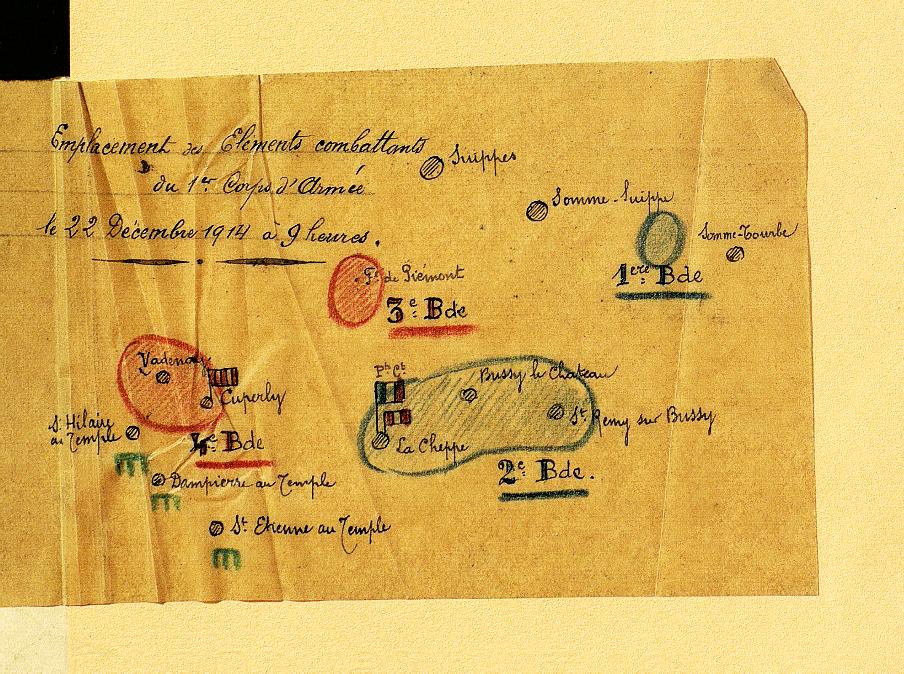 Emplacement des Eléments combattants
du 1er Corps d'Armée
le 22 Décembre 1914 à 9 heures.
Suippes
Somme-Suippe
Somme-Tourbe
1ere Bde
Fe de Piémont
3e Bde
Vadenay
Cuperly
St Hilaire
au Temple
4e Bde
Dampierre au Temple
St Etienne au Temple
Bussy le Chateau
St Remy sur Bussy
La Cheppe
2e Bde.